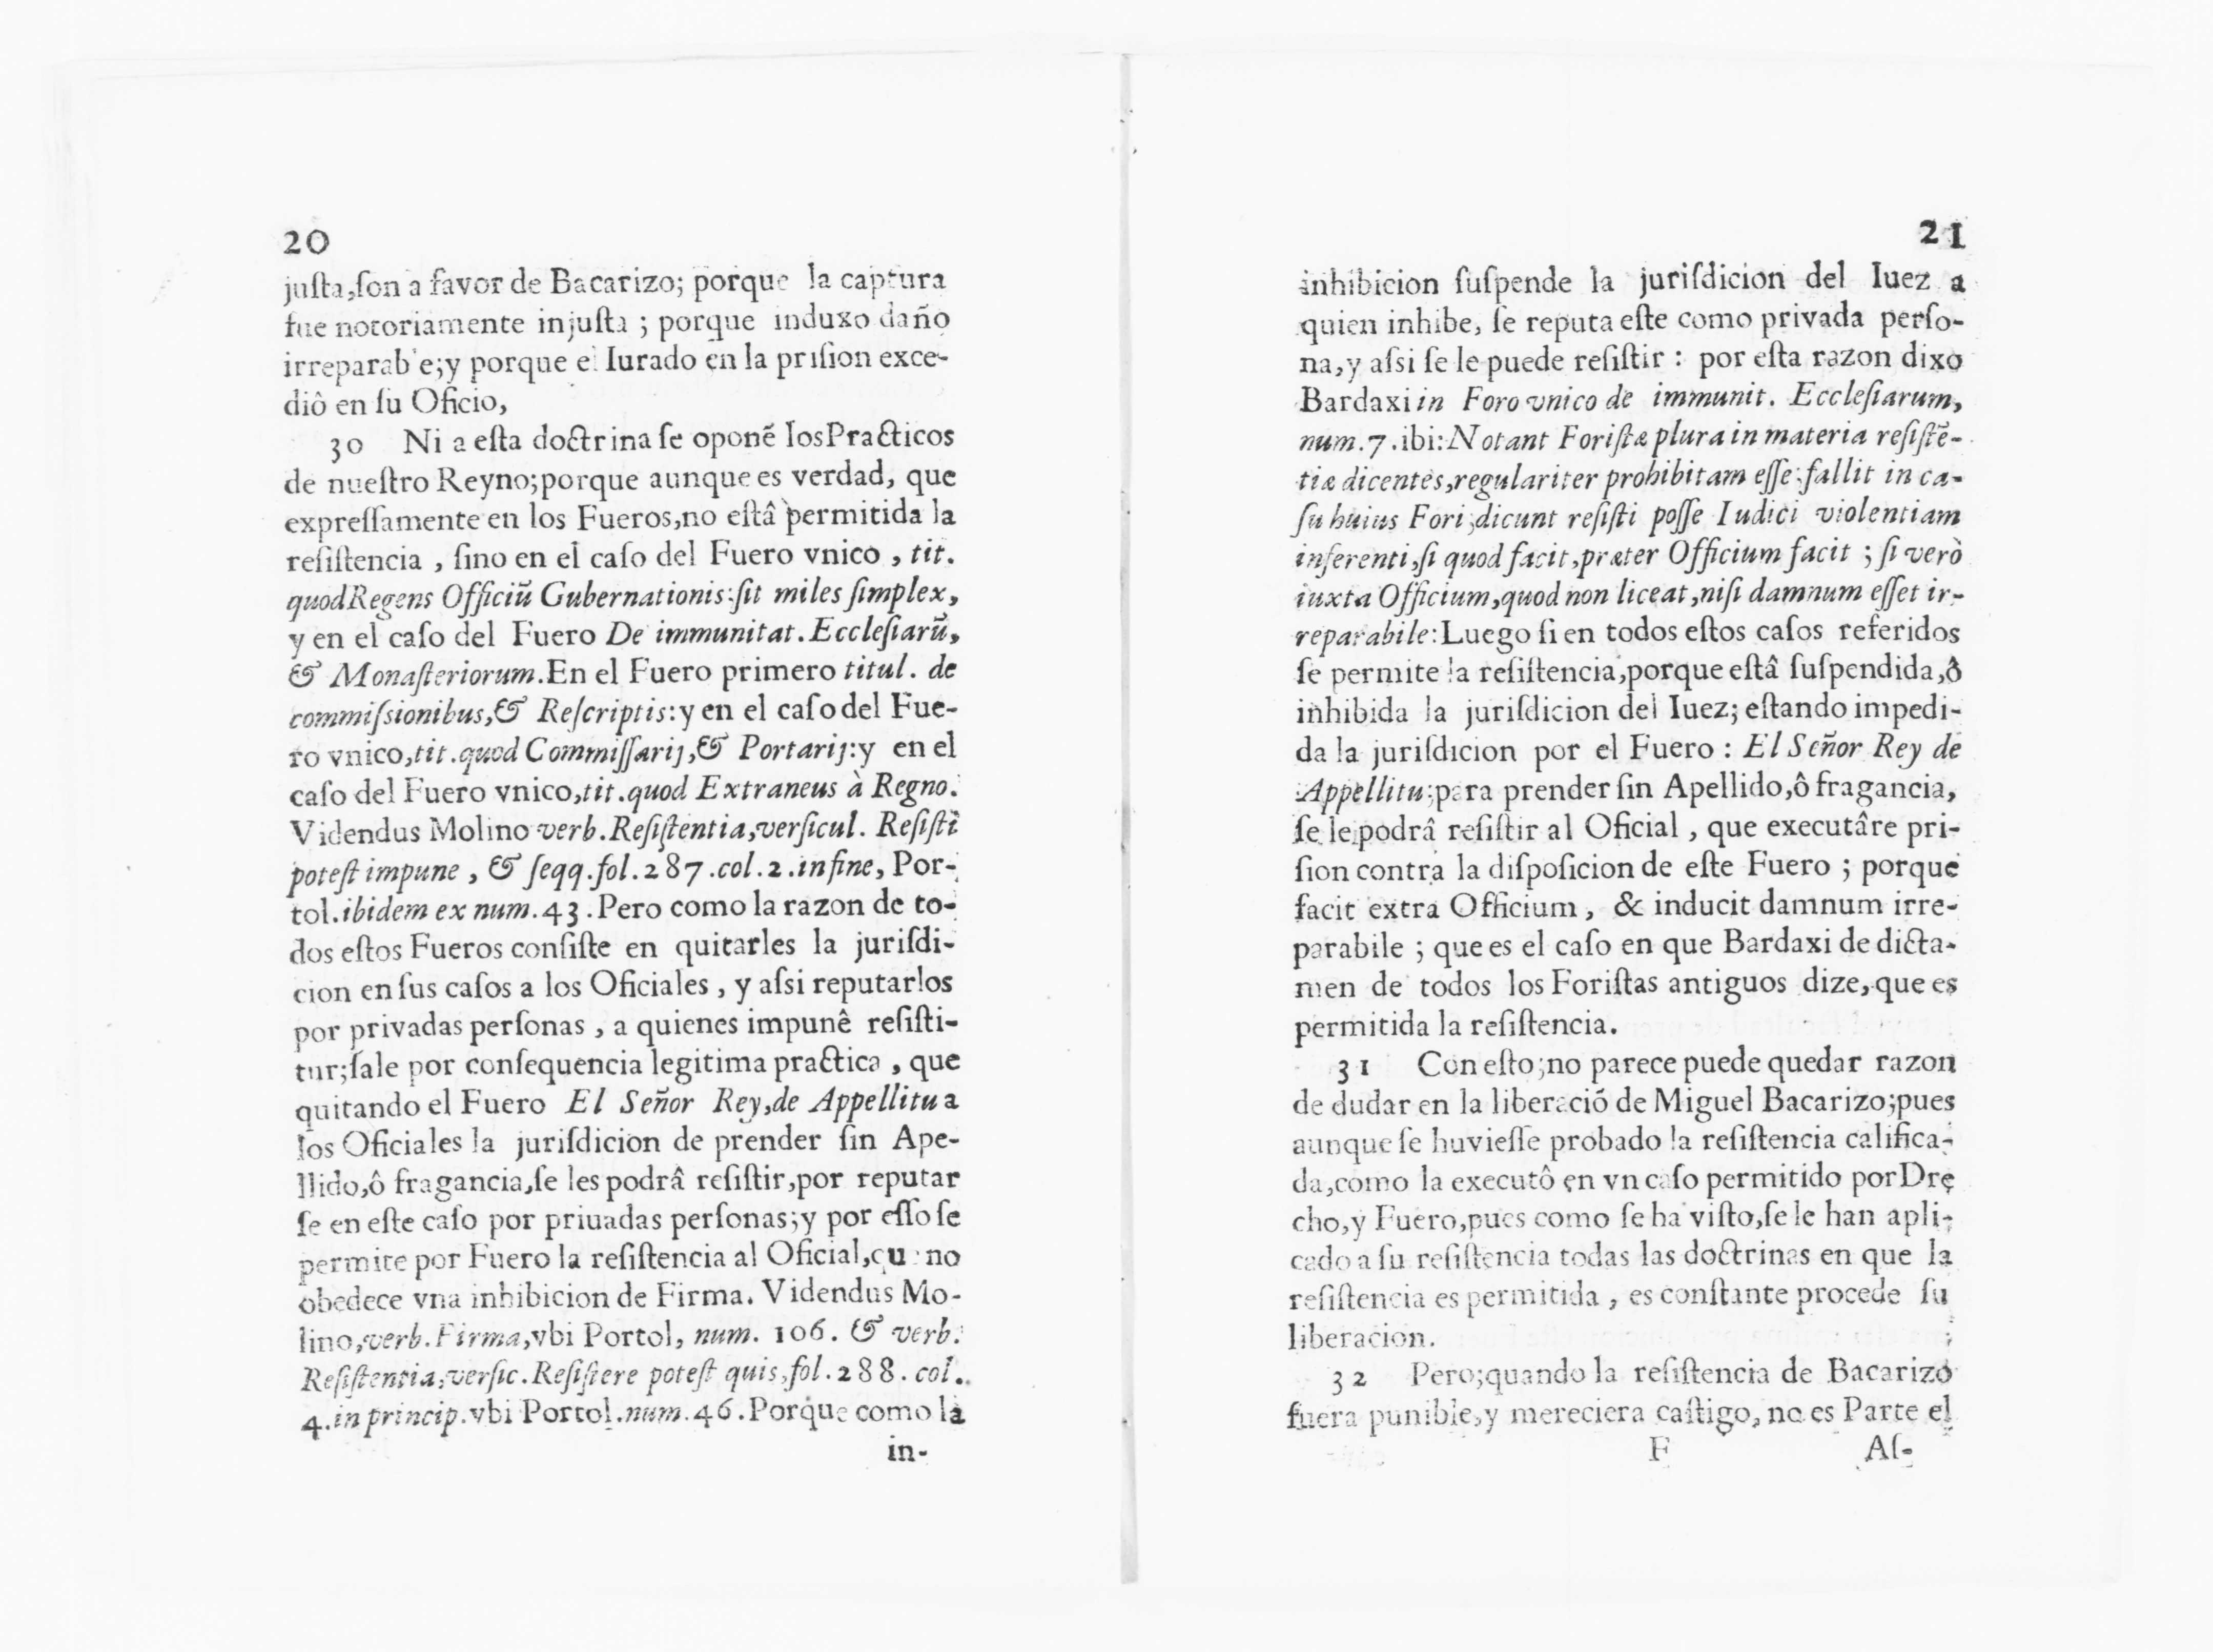 20
juſta,ſon a favor de Bacarizo; porque la captura
fue notoriamente injuſta ; porque induxo daño
irreparab'e;y porque el Iurado en la priſion exce-
diô en ſu Oficio,
30 Ni a eſta doctrina ſe oponẽ los Practicos
de nueſtro Reyno;porque aunque es verdad, que
expreſſamente en los Fueros,no eſtâ permitida la
reſiſtencia , ſino en el caſo del Fuero vnico , tit.
quod Regens Officiũ Gubernationis:ſit miles ſimplex,
y en el caſo del Fuero De immunitat. Eccleſiarũ,
& Monaſteriorum.En el Fuero primero titul. de
commiſsionibus,& Reſcriptis:y en el caſo del Fue-
ro vnico,tit.quod Commiſſarij,& Portarij:y en el
caſo del Fuero vnico,tit.quod Extraneus à Regno.
Videndus Molino verb.Reſiſtentia,verſicul. Reſiſti
poteſt impune , & ſeqq.fol.287.col.2.in fine, Por-
tol.ibidem ex num.43.Pero como la razon de to-
dos eſtos Fueros conſiſte en quitarles la juriſdi-
cion en ſus caſos a los Oficiales , y aſsi reputarlos
por privadas perſonas , a quienes impunê reſiſti-
tur;ſale por conſequencia legitima practica , que
quitando el Fuero El Señor Rey,de Appellitu a
los Oficiales la juriſdicion de prender ſin Ape-
llido,ô fragancia,ſe les podrâ reſiſtir,por reputar
ſe en eſte caſo por priuadas perſonas;y por eſſo ſe
permite por Fuero la reſiſtencia al Oficial,que no
obedece vna inhibicion de Firma. Videndus Mo-
lino,verb.Firma,vbi Portol, num. 106. & verb.
Reſiſtentia,verſic.Reſiſtere poteſt quis,fol.288. col.
4.in princip.vbi Portol.num.46.Porque como la
in-
21
inhibicion ſuſpende la juriſdicion del Iuez a
quien inhibe, ſe reputa eſte como privada perſo-
na,y aſsi ſe le puede reſiſtir : por eſta razon dixo
Bardaxi in Foro vnico de immunit. Eccleſiarum,
num.7.ibi:Notant Foriſtæ plura in materia reſiſtẽ-
tiæ dicentes,regulariter prohibitam eſſe;fallit in ca-
ſu huius Fori;dicunt reſiſti poſſe Iudici violentiam
inferenti,ſi quod facit,præter Officium facit ; ſi verò
iuxta Officium,quod non liceat,niſi damnum eſſet ir-
reparabile:Luego ſi en todos eſtos caſos referidos
ſe permite la reſiſtencia,porque eſtâ ſuſpendida,ô
inhibida la juriſdicion del Iuez; eſtando impedi-
da la juriſdicion por el Fuero : El Señor Rey de
Appellitu;para prender ſin Apellido,ô fragancia,
ſe le podrâ reſiſtir al Oficial , que executâre pri-
ſion contra la diſpoſicion de eſte Fuero ; porque
facit extra Officium, & inducit damnum irre-
parabile ; que es el caſo en que Bardaxi de dicta-
men de todos los Foriſtas antiguos dize,que es
permitida la reſiſtencia.
31 Con eſto;no parece puede quedar razon
de dudar en la liberació de Miguel Bacarizo;pues
aunque ſe huvieſſe probado la reſiſtencia califica-
da,como la executô en vn caſo permitido por Dre
cho,y Fuero,pues como ſe ha viſto,ſe le han apli-
cado a ſu reſiſtencia todas las doctrinas en que la
reſiſtencia es permitida , es conſtante procede ſu
liberacion.
32 Pero;quando la reſiſtencia de Bacarizo
fuera punible,y mereciera caſtigo, no es Parte el
F Aſ-